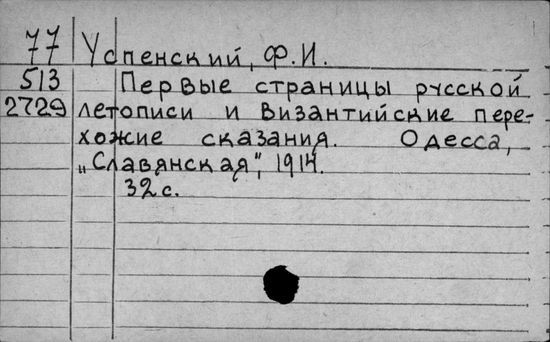 77 Успенский, Ф.И.
513 Первые страницы русской
2729 летописи и Византийские пере-
хожие сказания. Одесса,
„Славянская", 1914.
32 с.